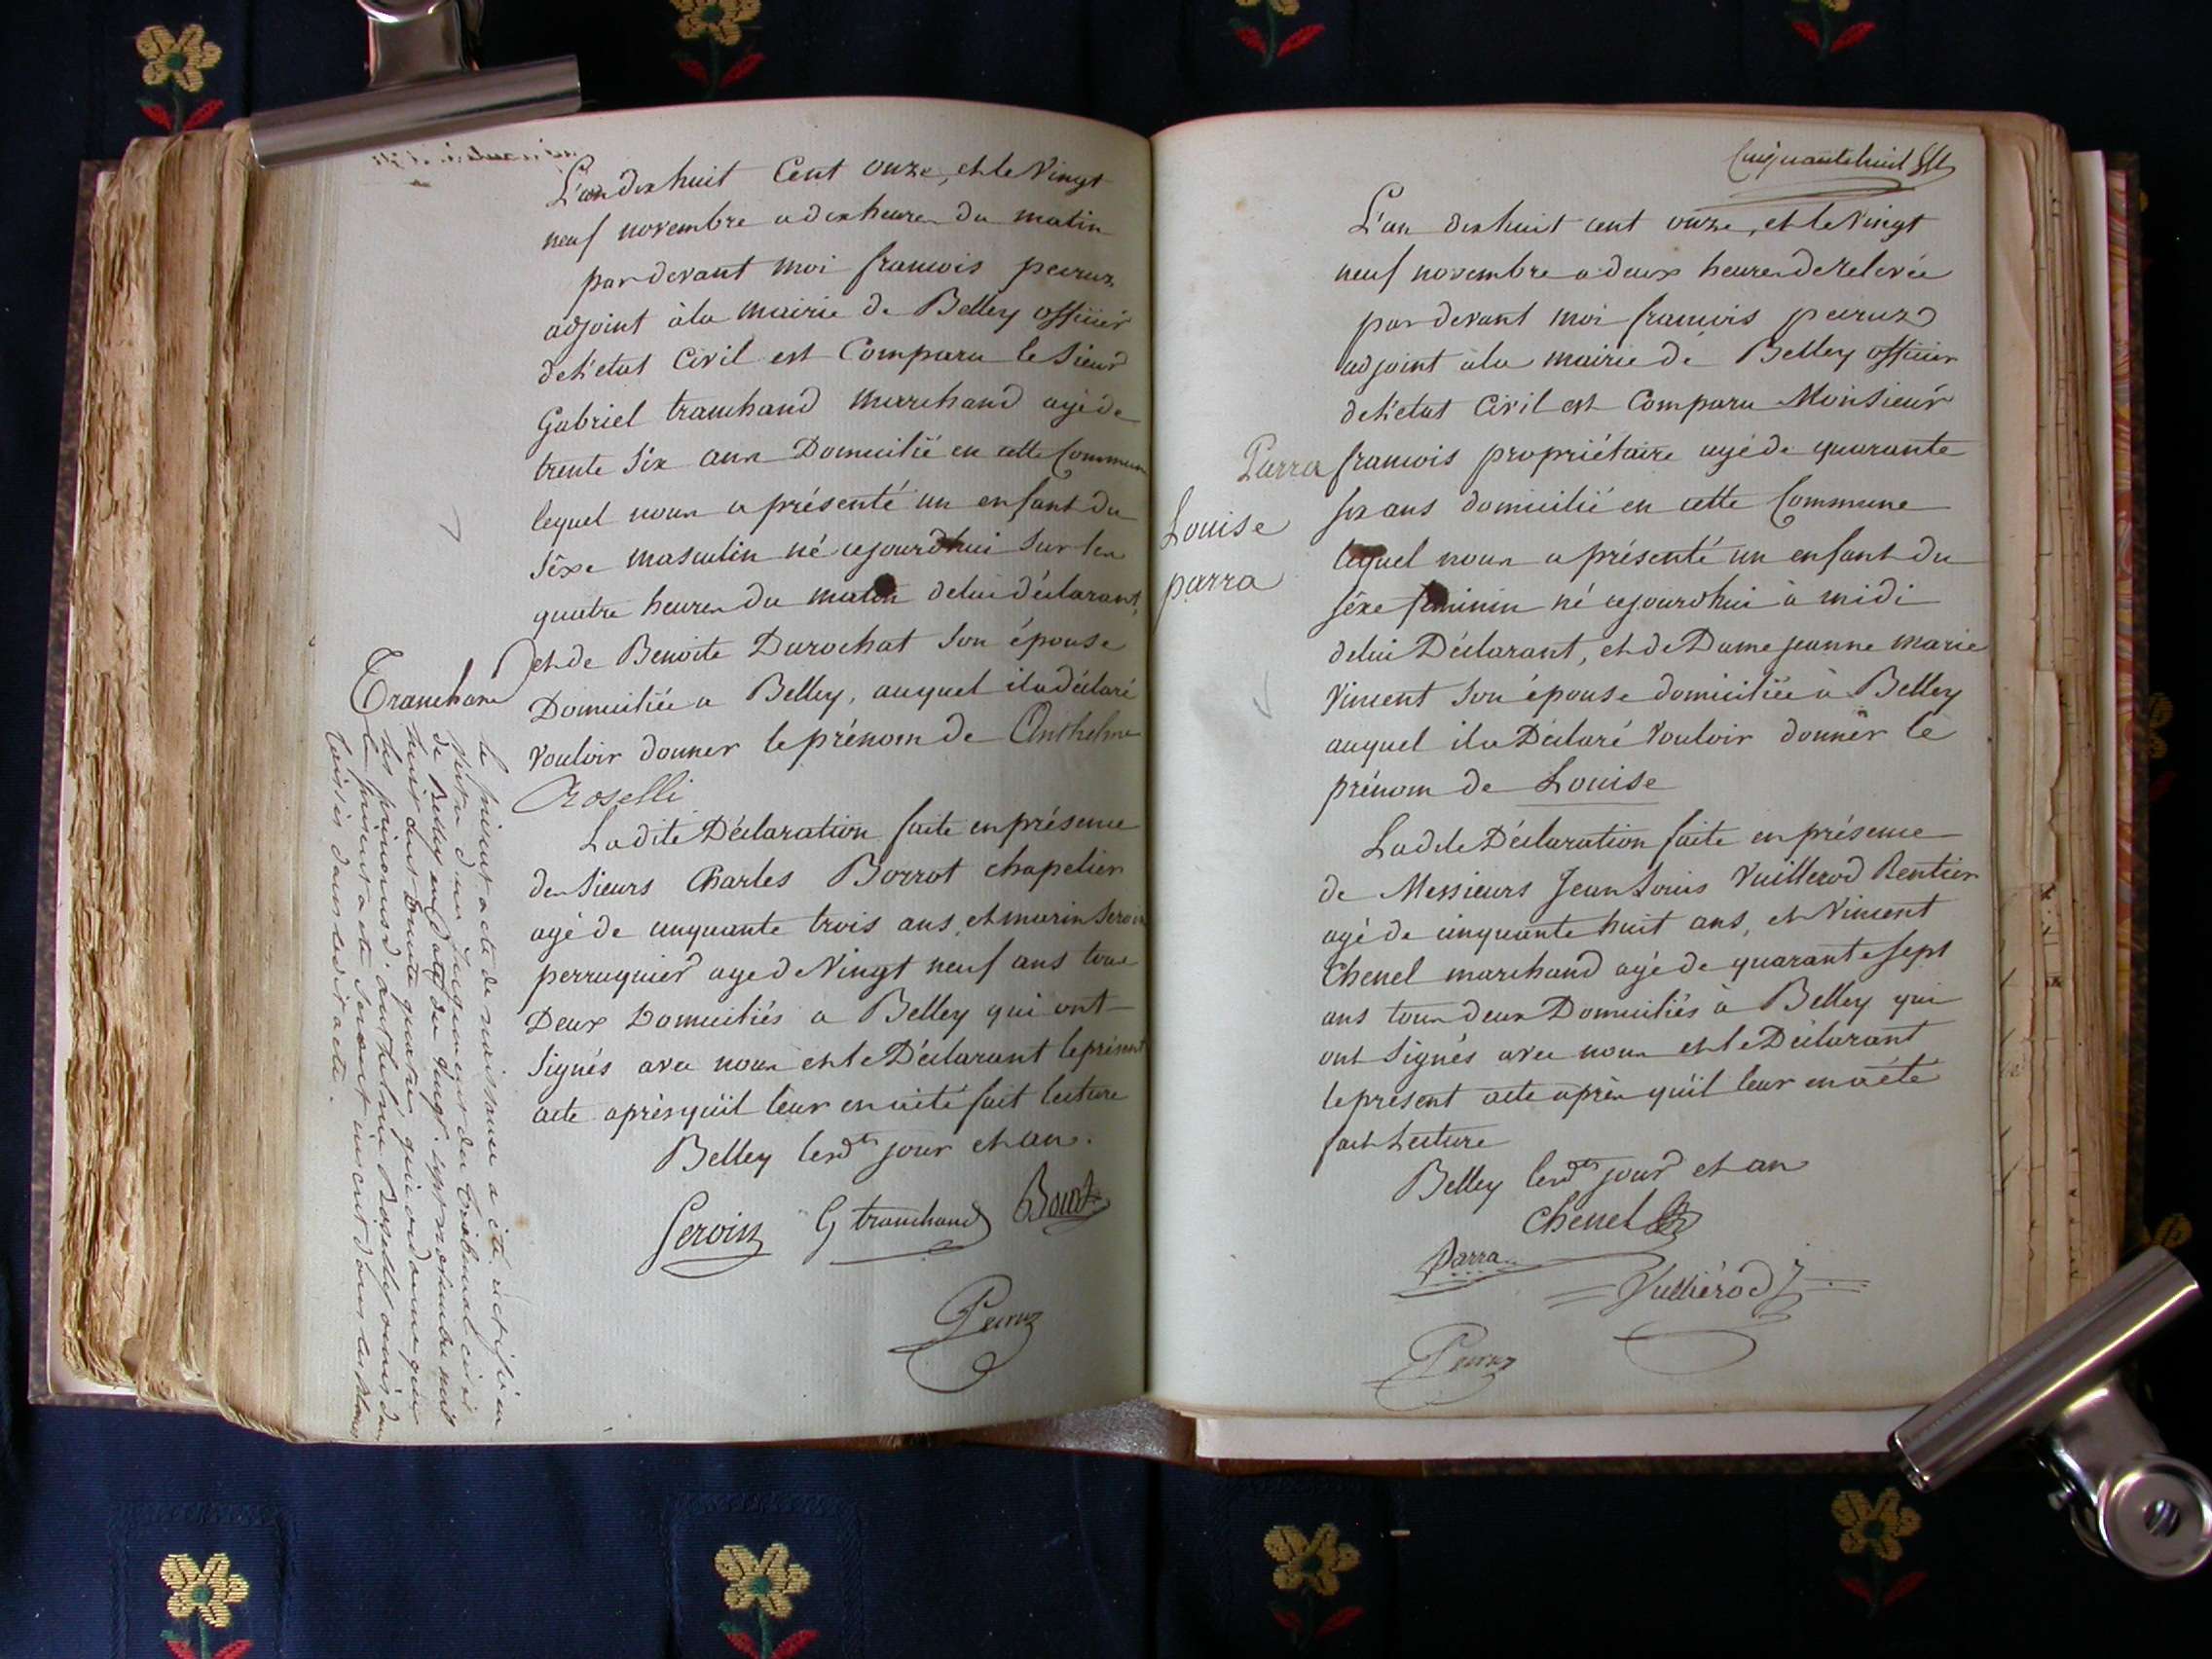 L'an dix huit Cent onze, et le Vingt
neuf novembre a dix heures du matin
par devant moi francois peiruz
adjoint à la mairie de Belley officier
de l'etat Civil est Comparu le Sieur
Gabriel tranchand Marchand agé de
trente Six ans Domicilié en cette Commune
lequel nous a présenté un enfant du
sèxe masculin né cejourdhui sur les
quatre heures du matin de lui déclarant,
et de Benoite Durochat Son épouse
Domiciliée a Belley, auquel il a déclaré
vouloir donner le prénom de Anthelme
Roselli
Ladite Déclaration faite en présence
des Sieurs Charles Borrot chapelier
agé de cinquante trois ans, et marin Seroin
perruquier age de Vingt neuf ans tous
Deux Domiciliés a Belley qui ont
Signés avec nous et le Déclarant le présent
acte après qu'il leur en a été fait lecture
Belley lesdts jour et an.
Seroin G tranchand Borrot
Peiruz
Tranchand
le présent acte de naissance a été rectifié en
vertu d'un Jugement du Tribunal civil
de Belley en date du vingt-sept novembre mil
huit cent trente quatre, qui ordonne que
les prénoms d'anthelme Roselly omis dans
le présent acte seront inscrit dans les blancs
laissés dans ledit acte.
Cinquante huit
L'an dix huit cent onze, et le Vingt
neuf novembre a deux heures de relevée
par devant moi francois peiruz
adjoint à la mairie de Belley officier
de l'etat Civil est Comparu Monsieur
Parra francois propriétaire agé de quarante
six ans domicilié en cette Commune
lequel nous a présenté un enfant du
sèxe feminin né cejourdhui à midi
de lui Déclarant, et de Dame jeanne marie
Vincent Son épouse domiciliée à Belley
auquel il a Déclaré Vouloir donner le
prénom de Louise
Ladite Déclaration faite en présence
de Messieurs Jean Louis Vuillerod Rentier
agé de cinquante huit ans, et Vincent
Chenel marchand agé de quarante sept
ans tous deux Domiciliés à Belley qui
ont Signés avec nous et le Déclarant
le présent acte après qu'il leur en a été
fait Lecture
Belley lesdts jour et an
Chenel
Parra
Vuillerod
Peiruz
Louise
parra